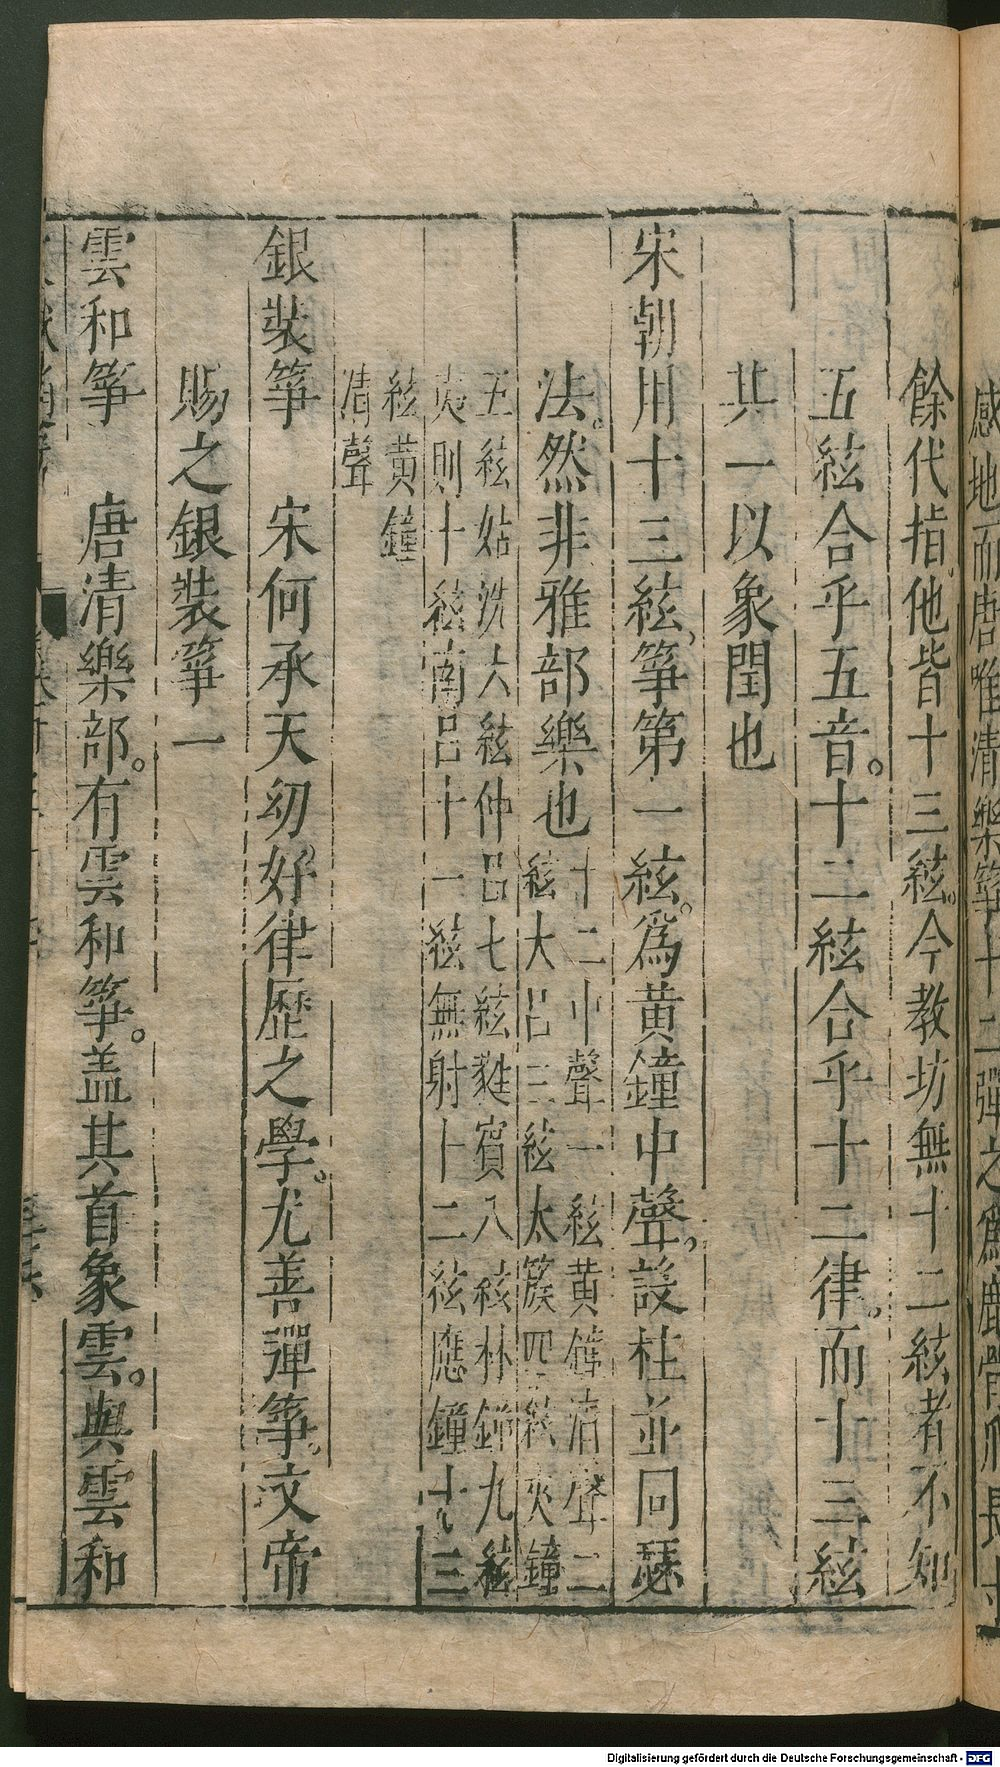 感地而唐唯清樂箏十二彈之爲鹿骨爪長
餘代指他皆十三絃。今教坊無十二絃者不知
五絃合乎五音。十二絃合乎十二律。而十三絃
其一以象閏也
宋朝用十三絃箏第一絃。爲黃鐘中聲。設柱並同瑟
法。然非雅部樂也
十二中聲一絃黃鐘清聲二
絃大呂三絃太簇四絃夾鐘
五絃姑洗六絃仲呂七絃蕤賓八絃林鐘九絃
夷則十絃南呂十一絃無射十二絃應鐘十三
絃黃鐘
清聲
銀裝箏 宋何承天幼好律歷之學。尤善彈箏。文帝
賜之銀裝箏一
雲和箏 唐清樂部。有雲和箏。盖其首象雲。與雲和
Digitalisierung gefördert durch die Deutsche Forschungsgemeinschaft - DFG